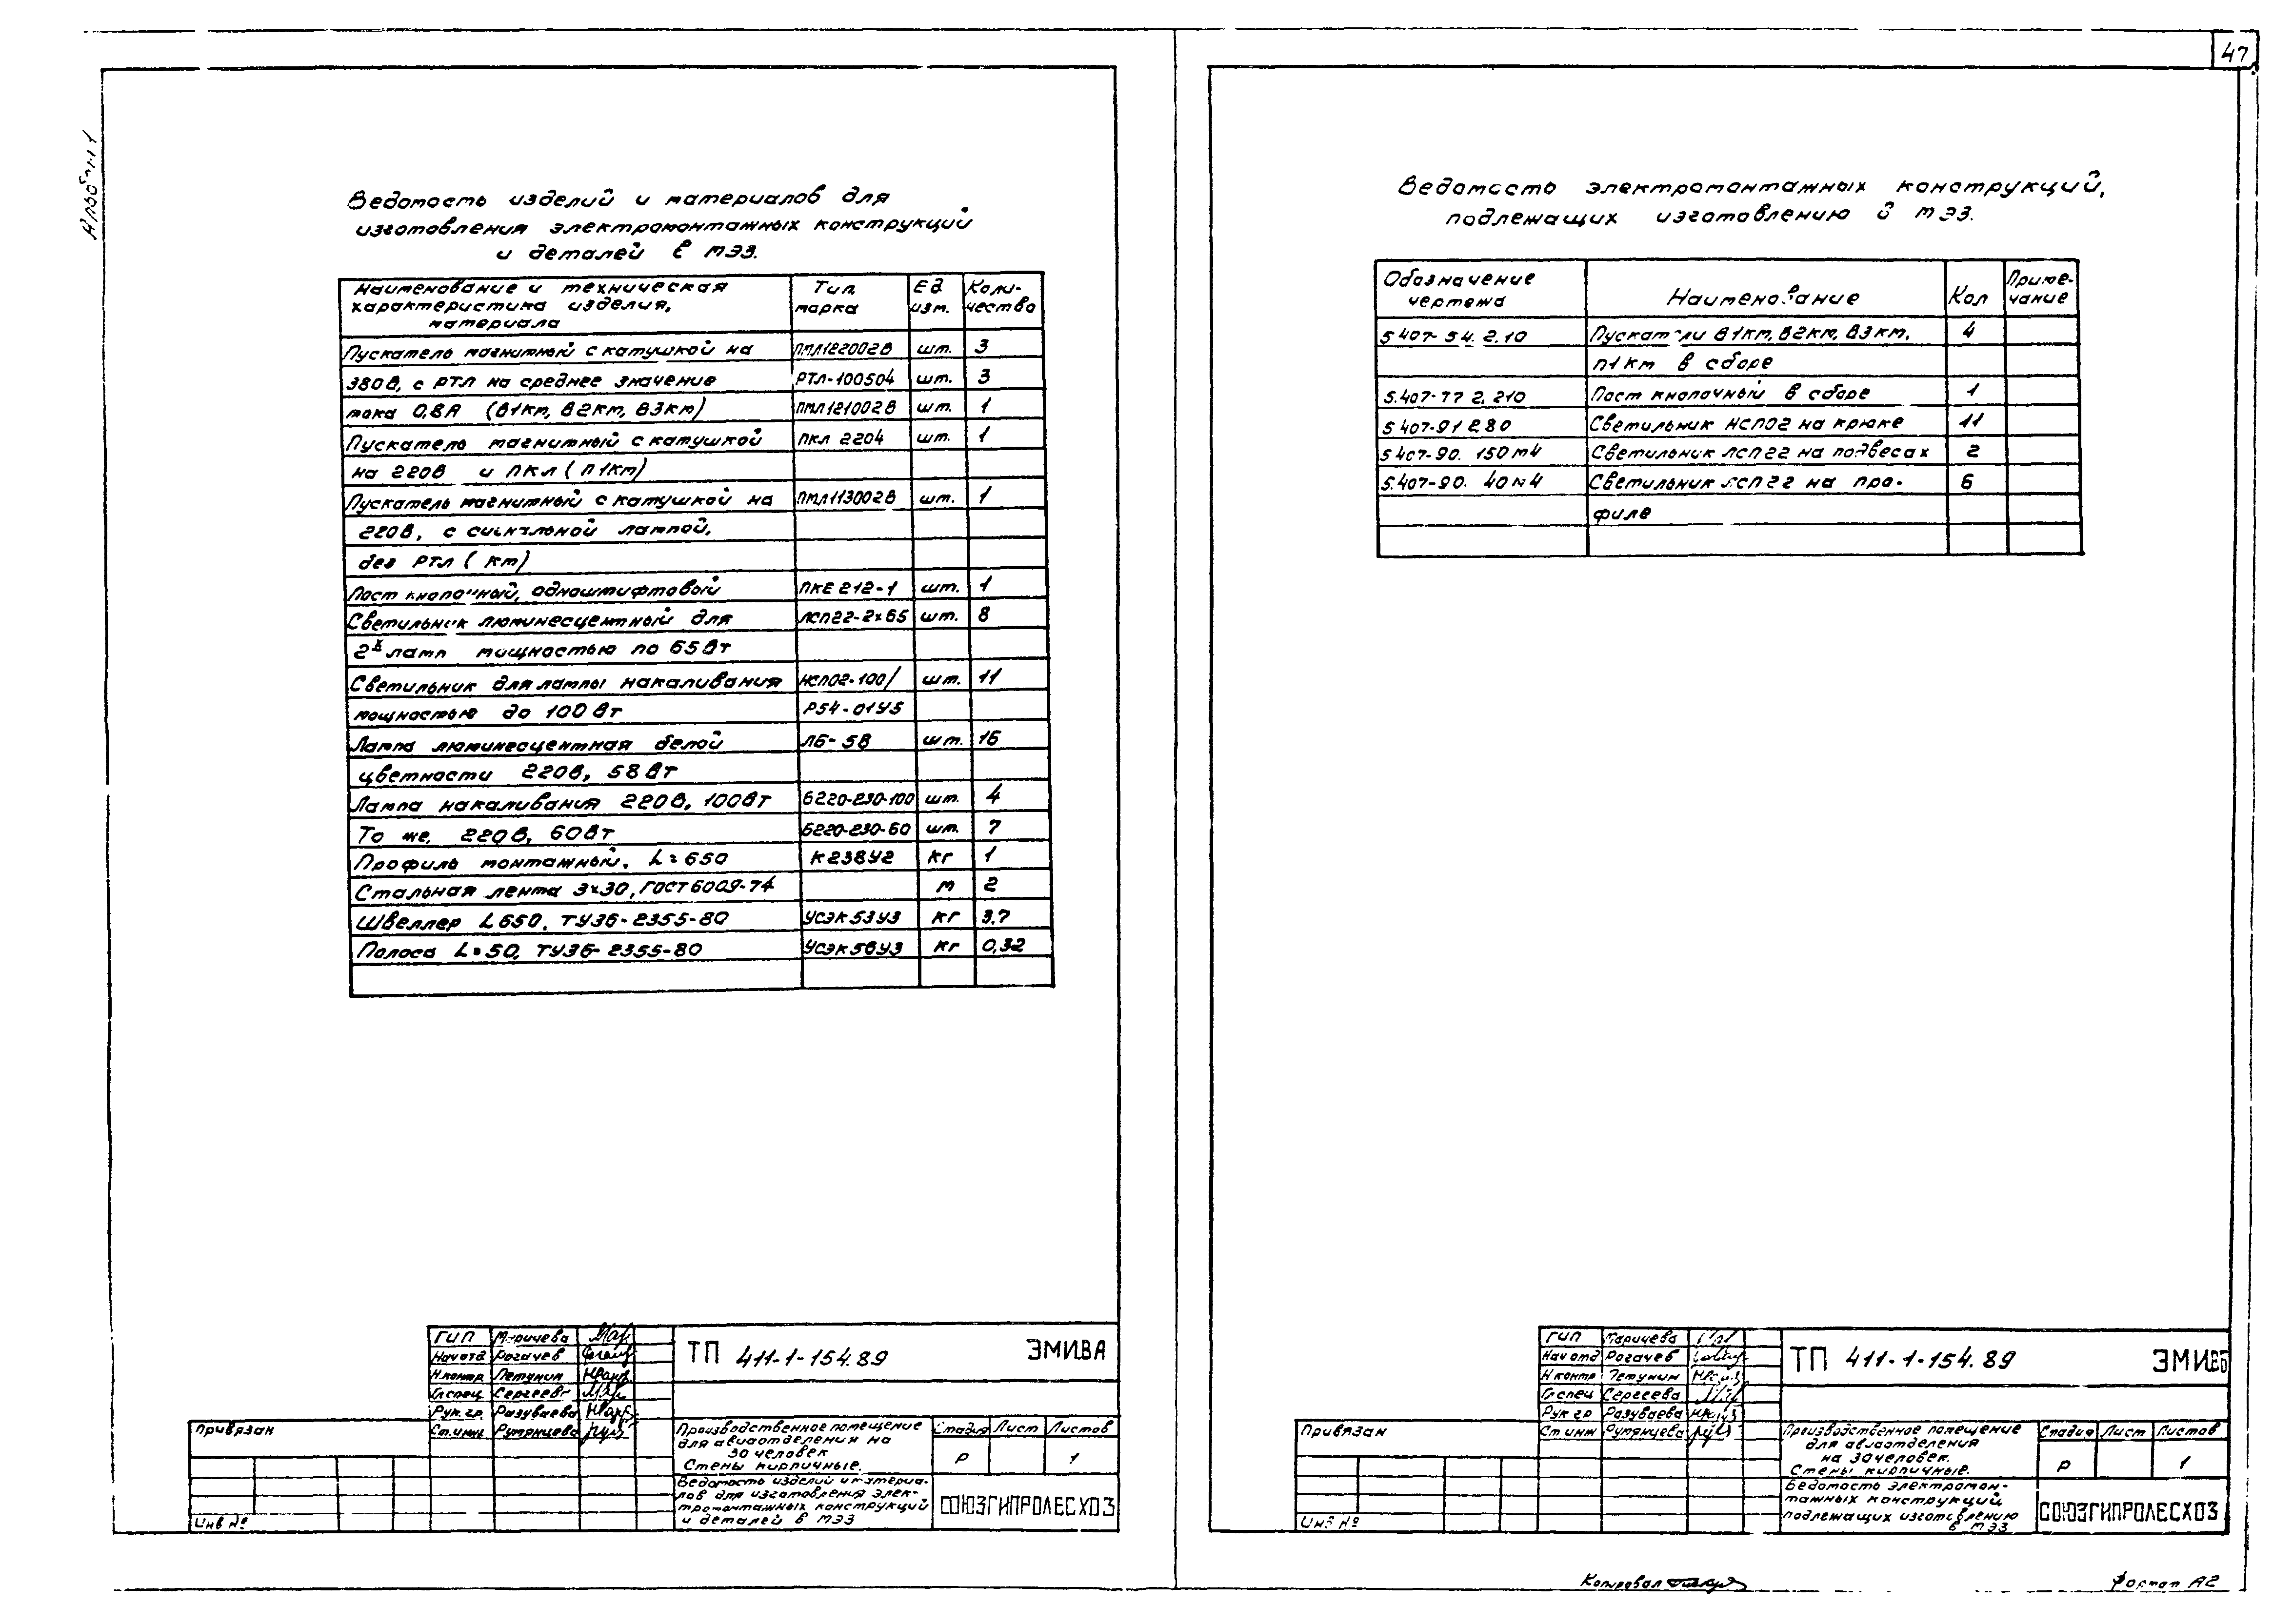 47
Альбом 1
Ведомость изделий и материалов для
изготовления электромонтажных конструкций
и деталей в МЭЗ.
Наименование и техническая характеристика изделия, материала | Тип марка | Ед изм. | Коли-чество
Пускатель магнитный с катушкой на | ПМЛ122002В | шт. | 3
380В, с РТЛ на среднее значение | РТЛ-100504 | шт. | 3
тока 0,8А (В1км, В2км, В3км) | ПМЛ121002В | шт. | 1
Пускатель магнитный с катушкой | ПКЛ 2204 | шт. | 1
на 220В и ПКЛ (П1км)
Пускатель магнитный с катушкой на | ПМЛ113002В | шт. | 1
220В, с сигнальной лампой,
без РТЛ (км)
Пост кнопочный, одноштифтовый | ПКЕ 212-1 | шт. | 1
Светильник люминесцентный для | ЛСП22-2х65 | шт. | 8
2х ламп мощностью по 65Вт
Светильник для лампы накаливания | НСП02-100/ | шт. | 11
мощностью до 100 Вт | Р54-01У5
Лампа люминесцентная белой | ЛБ-58 | шт. | 16
цветности 220В, 58 Вт
Лампа накаливания 220В, 100Вт | Б220-230-100 | шт. | 4
То же, 220В, 60Вт | Б220-230-60 | шт. | 7
Профиль монтажный. L=650 | К238У2 | кг | 1
Стальная лента 3х30, ГОСТ6009-74 | м | 2
Швеллер L650, ТУ36-2355-80 | УСЭК53У3 | кг | 3.7
Полоса L=50, ТУ36-2355-80 | УСЭК56У3 | кг | 0,32
ГИП Маричева
Нач отд Рогачев
Н.контр Петунин
Гл.спец Сергеева
Рук.гр. Разуваева
Ст.инж Румянцева
ТП 411-1-154.89 ЭМИ.ВА
Привязан
Инв №
Производственное помещение
для авиаотделения на
30 человек
Стены кирпичные.
Стадия Лист Листов
Р 1
Ведомость изделий и материа-
лов для изготовления элек-
тромонтажных конструкций
и деталей в МЭЗ
СОЮЗГИПРОЛЕСХОЗ
Ведомость электромонтажных конструкций,
подлежащих изготовлению в МЭЗ.
Обозначение чертежа | Наименование | Кол | Приме-чание
5.407-54.2.10 | Пускатели В1км, В2км, В3км, | 4
П1км в сборе
5.407-77 2.210 | Пост кнопочный в сборе | 1
5.407-91 2.80 | Светильник НСП02 на крюке | 11
5.407-90. 150м4 | Светильник ЛСП22 на подвесах | 2
5.407-90. 40м4 | Светильник ЛСП22 на про- | 6
филе
ГИП Маричева
Нач отд Рогачев
Н контр Петунин
Гл.спец Сергеева
Рук гр Разуваева
Ст инж Румянцева
ТП 411-1-154.89 ЭМИ.ВБ
Привязан
Инв №
Производственное помещение
для авиаотделения
на 30 человек.
Стены кирпичные.
Стадия Лист Листов
Р 1
Ведомость электромон-
тажных конструкций,
подлежащих изготовлению
в МЭЗ
СОЮЗГИПРОЛЕСХОЗ
Копировал
Формат А2